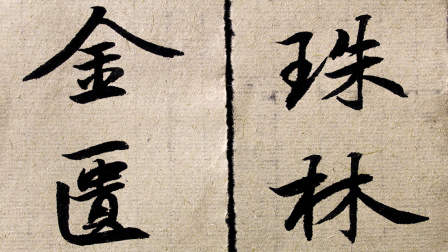 珠林
金匱